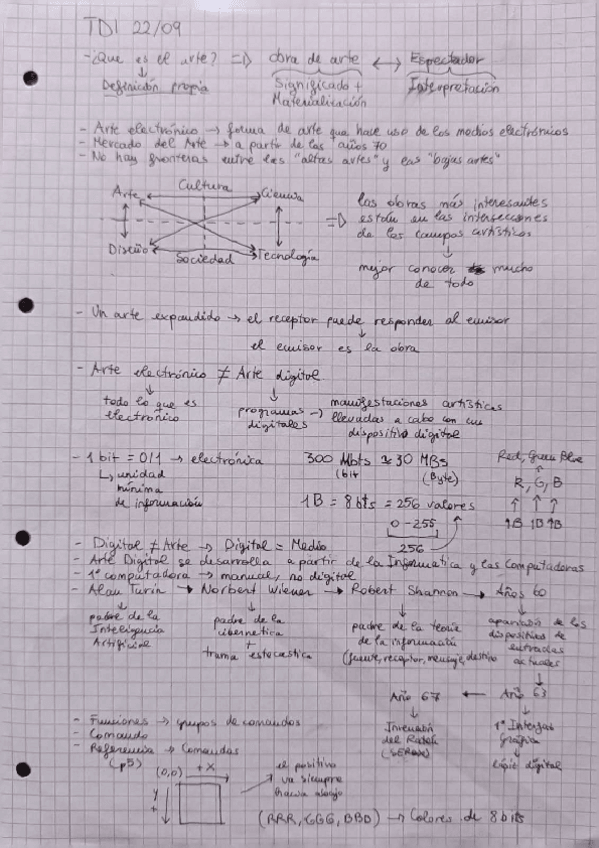 TDI 22/09
- ¿Que es el arte? => obra de arte <-> Espectador
Definición propia
Significado + Materialización
Interpretación
- Arte electrónico -> forma de arte que hace uso de los medios electrónicos
- Mercado del Arte -> a partir de los años 70
- No hay fronteras entre las "altas artes" y las "bajas artes"
Cultura
Arte
Ciencia
Diseño
Sociedad
Tecnología
=> las obras más interesantes
están en las intersecciones
de los campos artísticos
mejor conocer mucho
de todo
- Un arte expandido -> el receptor puede responder al emisor
el emisor es la obra
- Arte electrónico ≠ Arte digital
todo lo que es
electrónico
programas ->
digitales
manifestaciones artísticas
llevadas a cabo con un
dispositivo digital
- 1 bit = 0/1 -> electrónica
L, unidad
mínima
de información
300 Mbts ≈ 30 MBs
(bit
(Byte)
1B = 8 bts = 256 valores
0-255
256
Red, Green Blue
R, G, B
1B 1B 1B
- Digital ≠ Arte -> Digital = Medio
- Arte Digital se desarrolla a partir de la Informatica y las Computadoras
- 1ª computadora -> manual, no digital
- Alan Turin -> Norbert Wiener -> Robert Shannon -> Años 60
padre de la
Inteligencia
Artificial
padre de la
cibernetica
+
trama estocastica
padre de la teoria
de la información
(fuente, receptor, mensaje, destino
aparición de los
dispositivos de
entradas
actuales
Año 67 <- Año 63
Invención
del Ratón
1ª Interfaz
Gráfica
lápiz digital
- Funciones -> grupos de comandos
- Comando
- Referencia -> Comandos
(p5)
(0,0) + X
Y
+
el positivo
va siempre
hacia abajo
(RRR, GGG, BBB) -> Colores de 8 bits